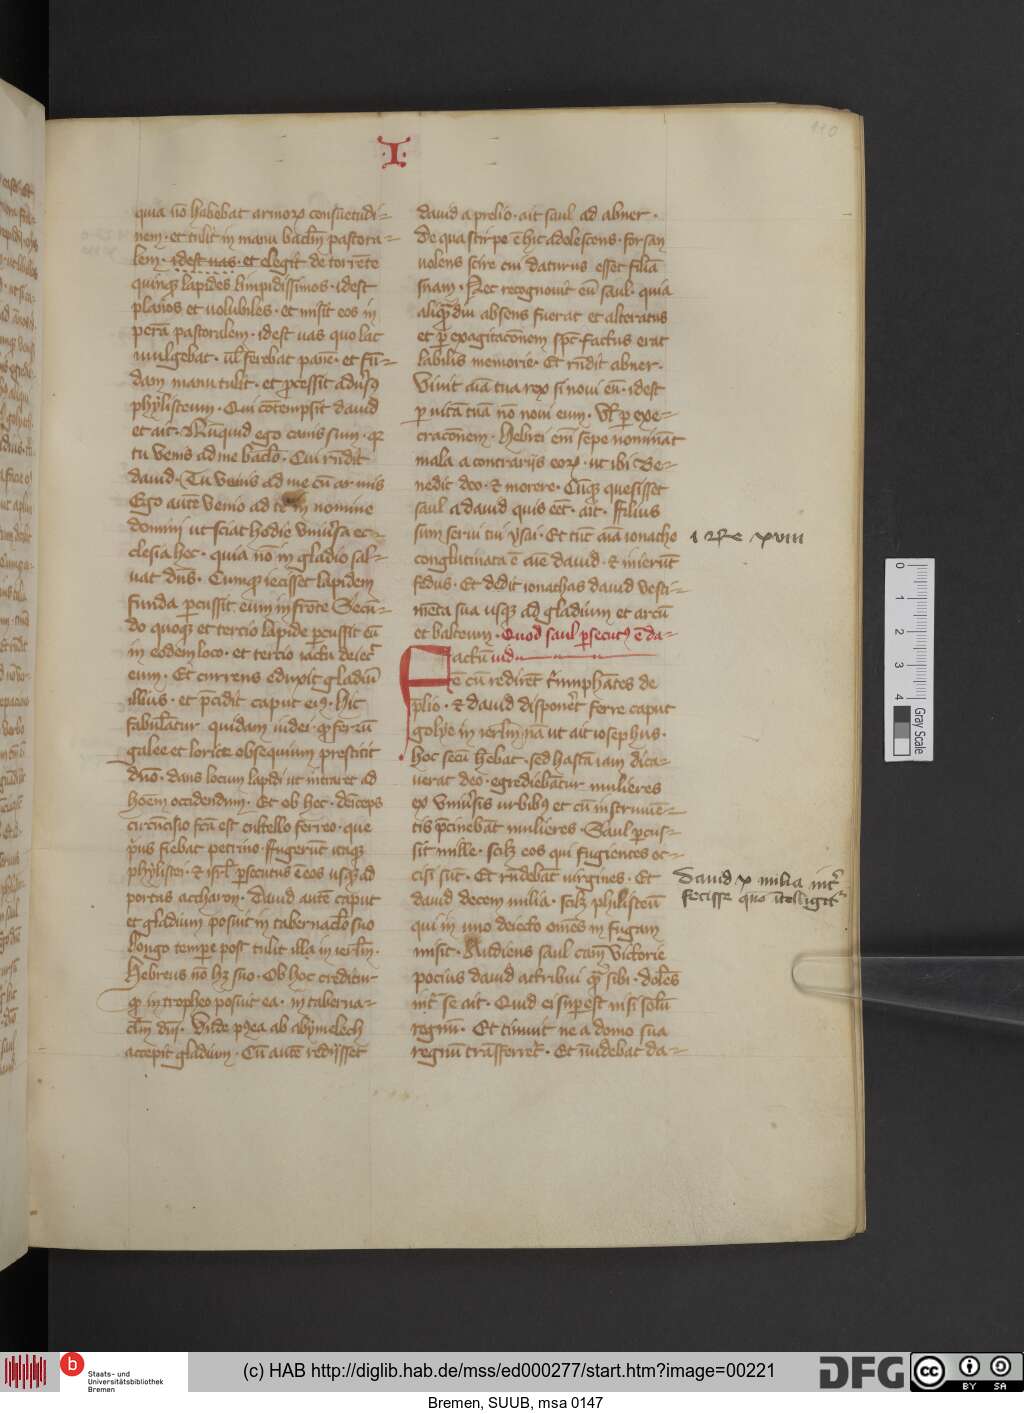 110
·I·
quia nō habebat armoꝝ consuetudi-
nem · et tulit in manu bacl̄m pastora-
lem · idest uas · et elegit de torrēte
quinqꝫ lapides limpidissimos · idest
planos et uolubiles · et misit eos in
perā pastoralem · idest uas quo lac
mulgebat · ul̄ ferebat panē · et fū-
dam manu tulit · et ꝓcessit aduꝰsꝰ
phylisteum · Qui cōtempsit dauid
et ait · Nūquid ego canis sum · qꝛ
tu venis ad me baclō · Cui rn̄dit
dauid · Tu venis ad me cū armis
Ego autē venio ad te in nomine
domini ut sciat hodie vniuꝰsa ec-
clesia hec · quia nō in gladio sal-
uat dn̄s · Cumqꝫ iecisset lapidem
funda ꝑcussit eum in frōte Secū-
do quoqꝫ et tercio lapide ꝑcussit eū
in eodem loco · et tercio iactu deiecꝰ
eum · Et currens eduxit gladiū
illius · et p̄cidit caput eiꝰ · Hic
fabulātur quidam iudei · ꝙ ferrū
galee et lorice obsequium prestitit
dn̄o · dans locum lapidi ut intraret ad
hoīem occidendum · Et ob hec · deīceps
circūcisio fc̄a est cultello ferreo · que
pꝰus fiebat petrino · ffugerūt itaqꝫ
phylistei · ⁊ isrl̄ ꝑsecutus ē eos usqꝫ ad
portas accharon · dauid autē caput
et gladium posuit in tabernaclō suo
Longo tempere post tulit illa in ierl̄m ·
Hebreus nō hꝫ suo · Ob hoc creditur
ꝙ in tropheo posuit ea · in taberna-
cl̄m dn̄i · Vnde pꝰea ab abymelech
accepit gladium · Cū autē redijsset
dauid a prelio · ait saul ad abner ·
de qua stirpe ē hic adolescens · forsan
uolens scire cui daturus esset filiā
suam · Nec recognouit eū saul · quia
aliqꝫdiu absens fuerat et alteratus
et ꝑ exagitacōnem spc̄ · factus erat
labilis memorie · Et rn̄dit abner ·
Viuit aīa tua rex si noui eū · idest
ꝑ uitā tuā nō noui eum · Vl̄ ꝑ exe-
cracōnem · Hebrei em̄ sepe nomināt
mala a contrarijs eoꝝ · ut ibi Be-
nedic deo · ⁊ morere · Cūqꝫ quesisset
saul a dauid quis eēt · ait · ffilius
sum serui tui ysai · Et tūc aīa ionathe
conglutinata ē aīe dauid · ⁊ inierūt
fedus · Et dedit ionathas dauid vesti-
mēta sua usqꝫ ad gladium et arcū
et balteum · Quod saul ꝑsecutꝰ ē da-
Factū uid
ē cū redirēt triumphātes de
p̄lio · ⁊ dauid disponēt ferre caput
golye in ierl̄m nā ut ait iosephus ·
hoc secū h̄ebat · sed hastā iam dica-
uerat deo · egrediebātur mulieres
ex vniuꝰsis urbibꝰ et cū instrumē-
tis p̄cinebāt mulieres · Saul ꝑcus-
sit mille · scilꝫ eos qui fugientes oc-
cisi sūt · Et rn̄debāt uirgines · Et
dauid decem milia · scilꝫ philisteū
qui in uno deiecto omēs in fugam
misit · Audiens saul eam̄ victorie
pocius dauid attribui qꝫ sibi · dolēs
int̄ se ait · Quid ei suꝑest nisi solū
regnū · Et timuit ne a domo sua
regnū trāsferret̄ · Et nō uidebat da-
i Re xviii
Dauid x milia int̄
fecisse quō ītelligit̄
0
1
2
3
4
Gray Scale
b
Staats- und
Universitätsbibliothek
Bremen
(c) HAB http://diglib.hab.de/mss/ed000277/start.htm?image=00221
DFG
cc BY SA
Bremen, SUUB, msa 0147